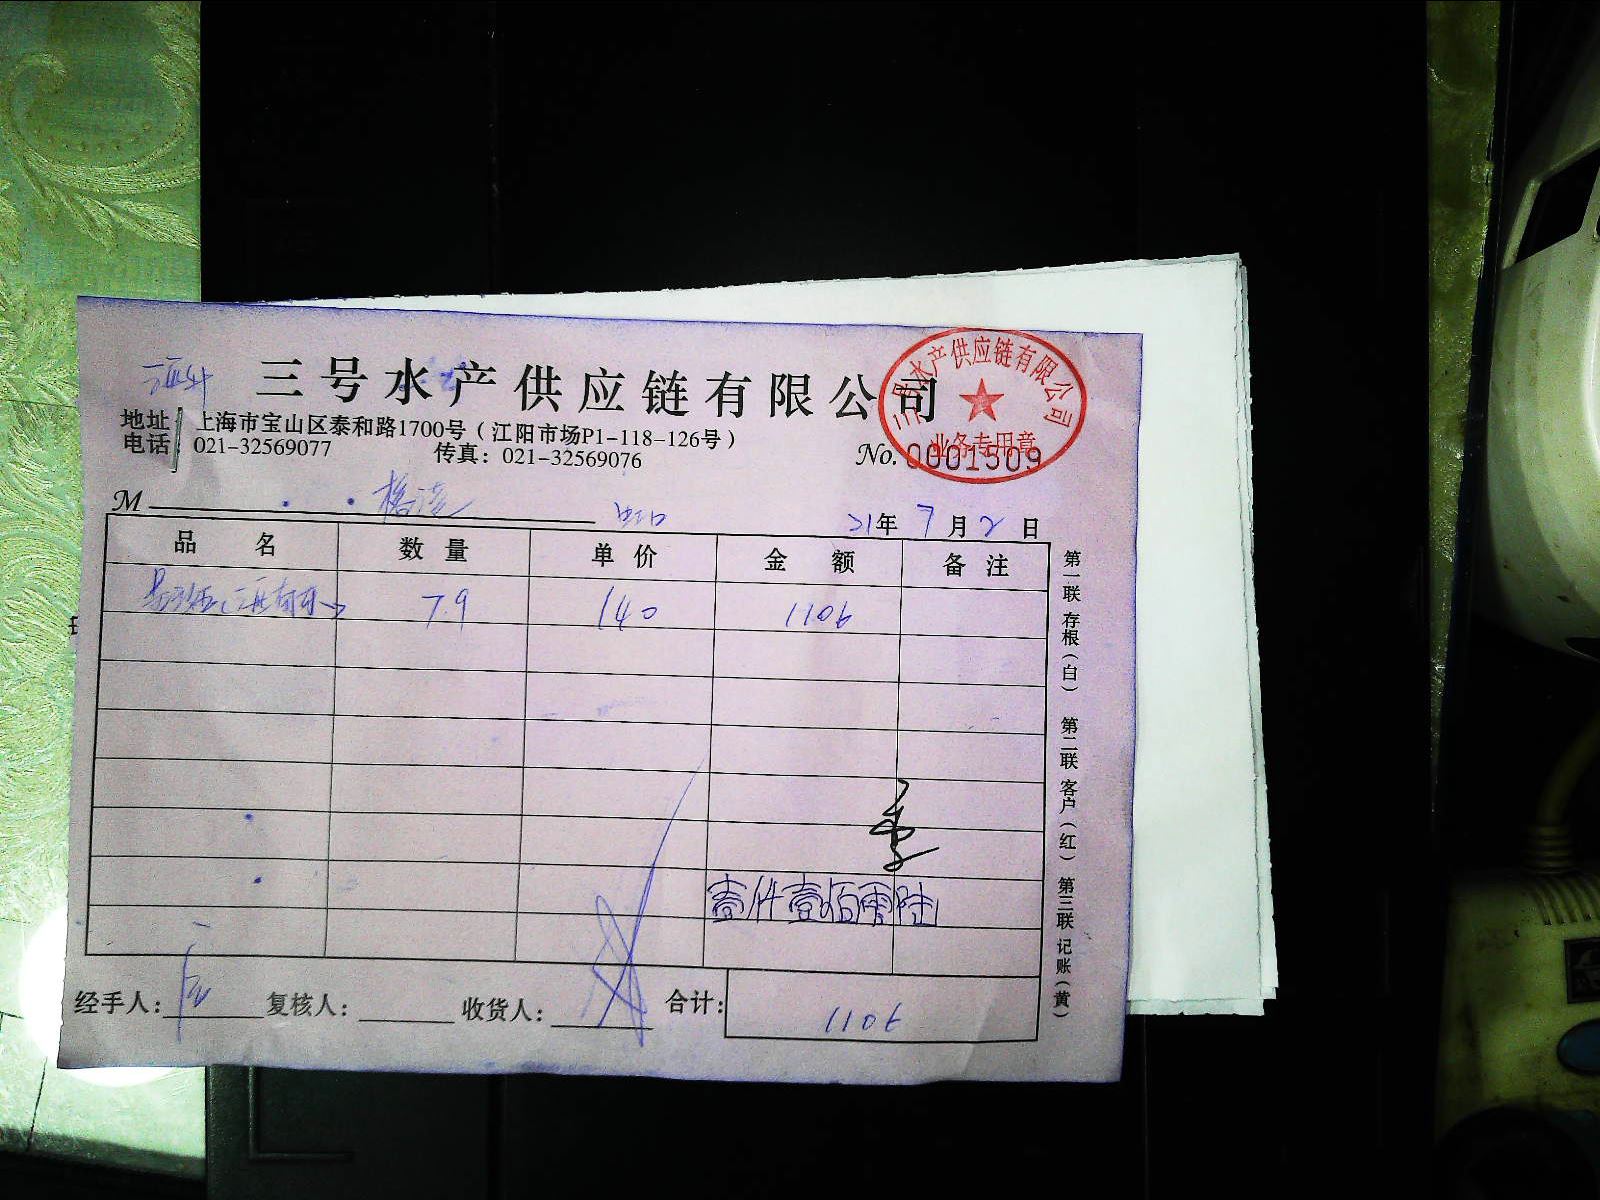 三号水产供应链有限公司
三号水产供应链有限公司
业务专用章
地址 上海市宝山区泰和路1700号（江阳市场P1-118-126号）
电话 021-32569077 传真：021-32569076
No. 0001509
M 虹口 21年 7月2日
品名 数量 单价 金额 备注
7.9 140 1106
李
壹仟壹佰零陆
经手人： 复核人： 收货人： 合计： 1106
第一联 存根（白） 第二联 客户（红） 第三联 记账（黄）